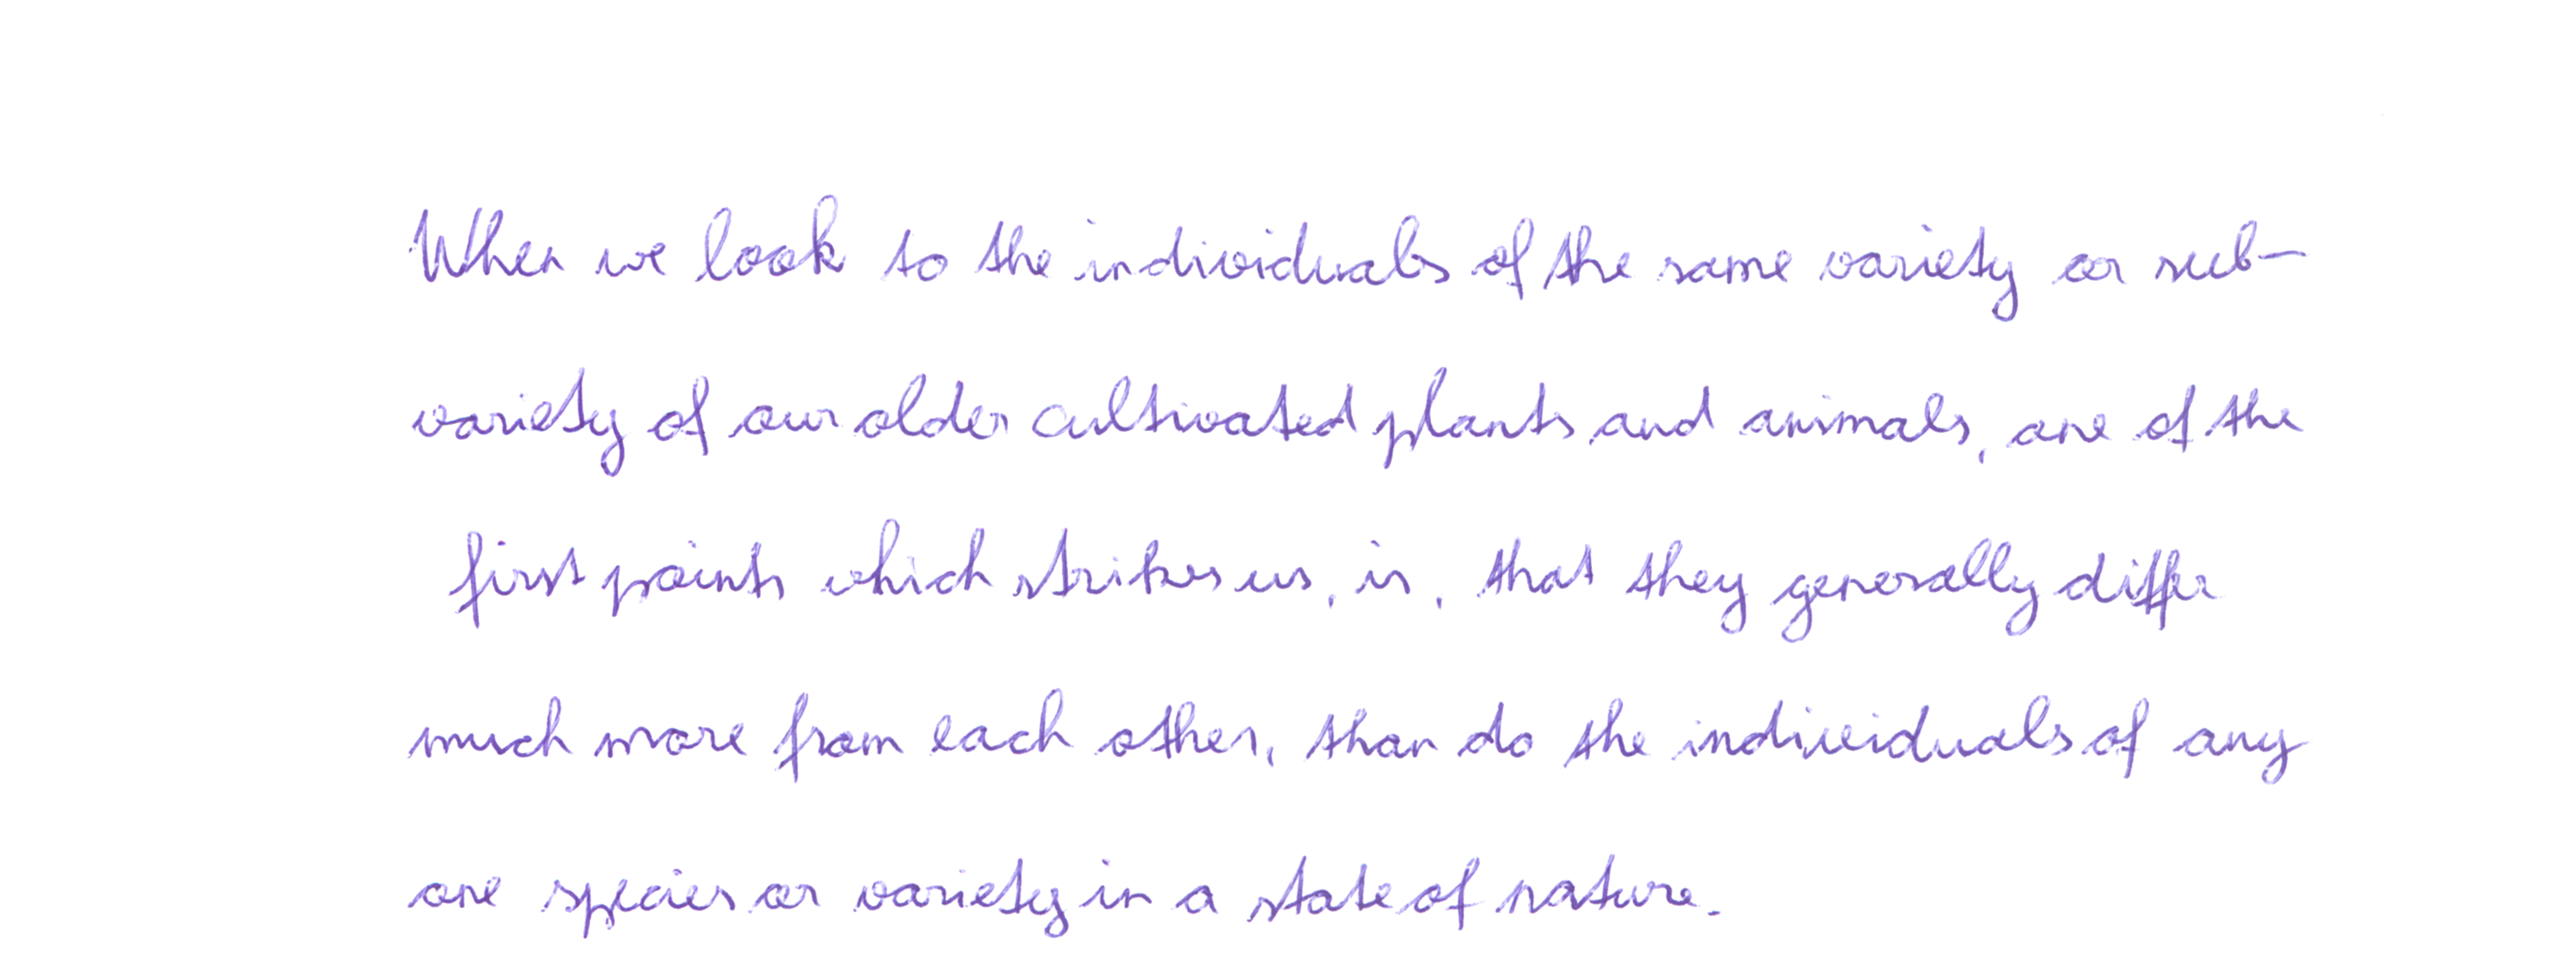 When we look to the individuals of the same variety or sub-
variety of our older cultivated plants and animals, one of the
first points which strikes us, is, that they generally differ
much more from each other, than do the individuals of any
one species or variety in a state of nature.